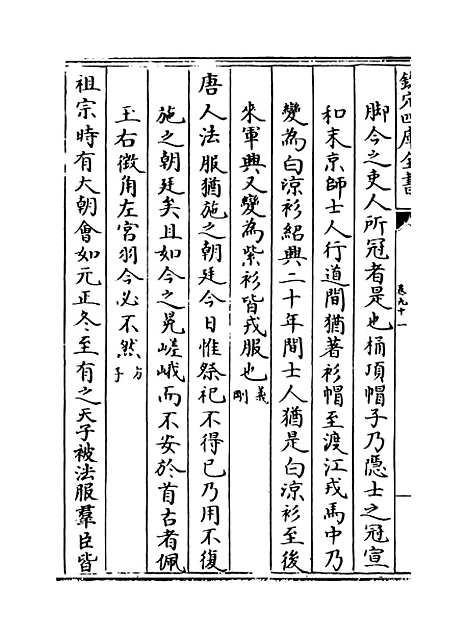 欽定四庫全書
卷九十一
脚今之吏人所冠者是也桶頂帽子乃隱士之冠宣
和末京師士人行道間猶著衫帽至渡江戎馬中乃
變為白涼衫紹興二十年間士人猶是白涼衫至後
來軍興又變為紫衫皆戎服也義剛
唐人法服猶施之朝廷今日惟祭祀不得已乃用不復
施之朝廷矣且如今之冕嵯峨而不安於首古者佩
玉右徵角左宮羽今必不然方子
祖宗時有大朝會如元正冬至有之天子被法服羣臣皆